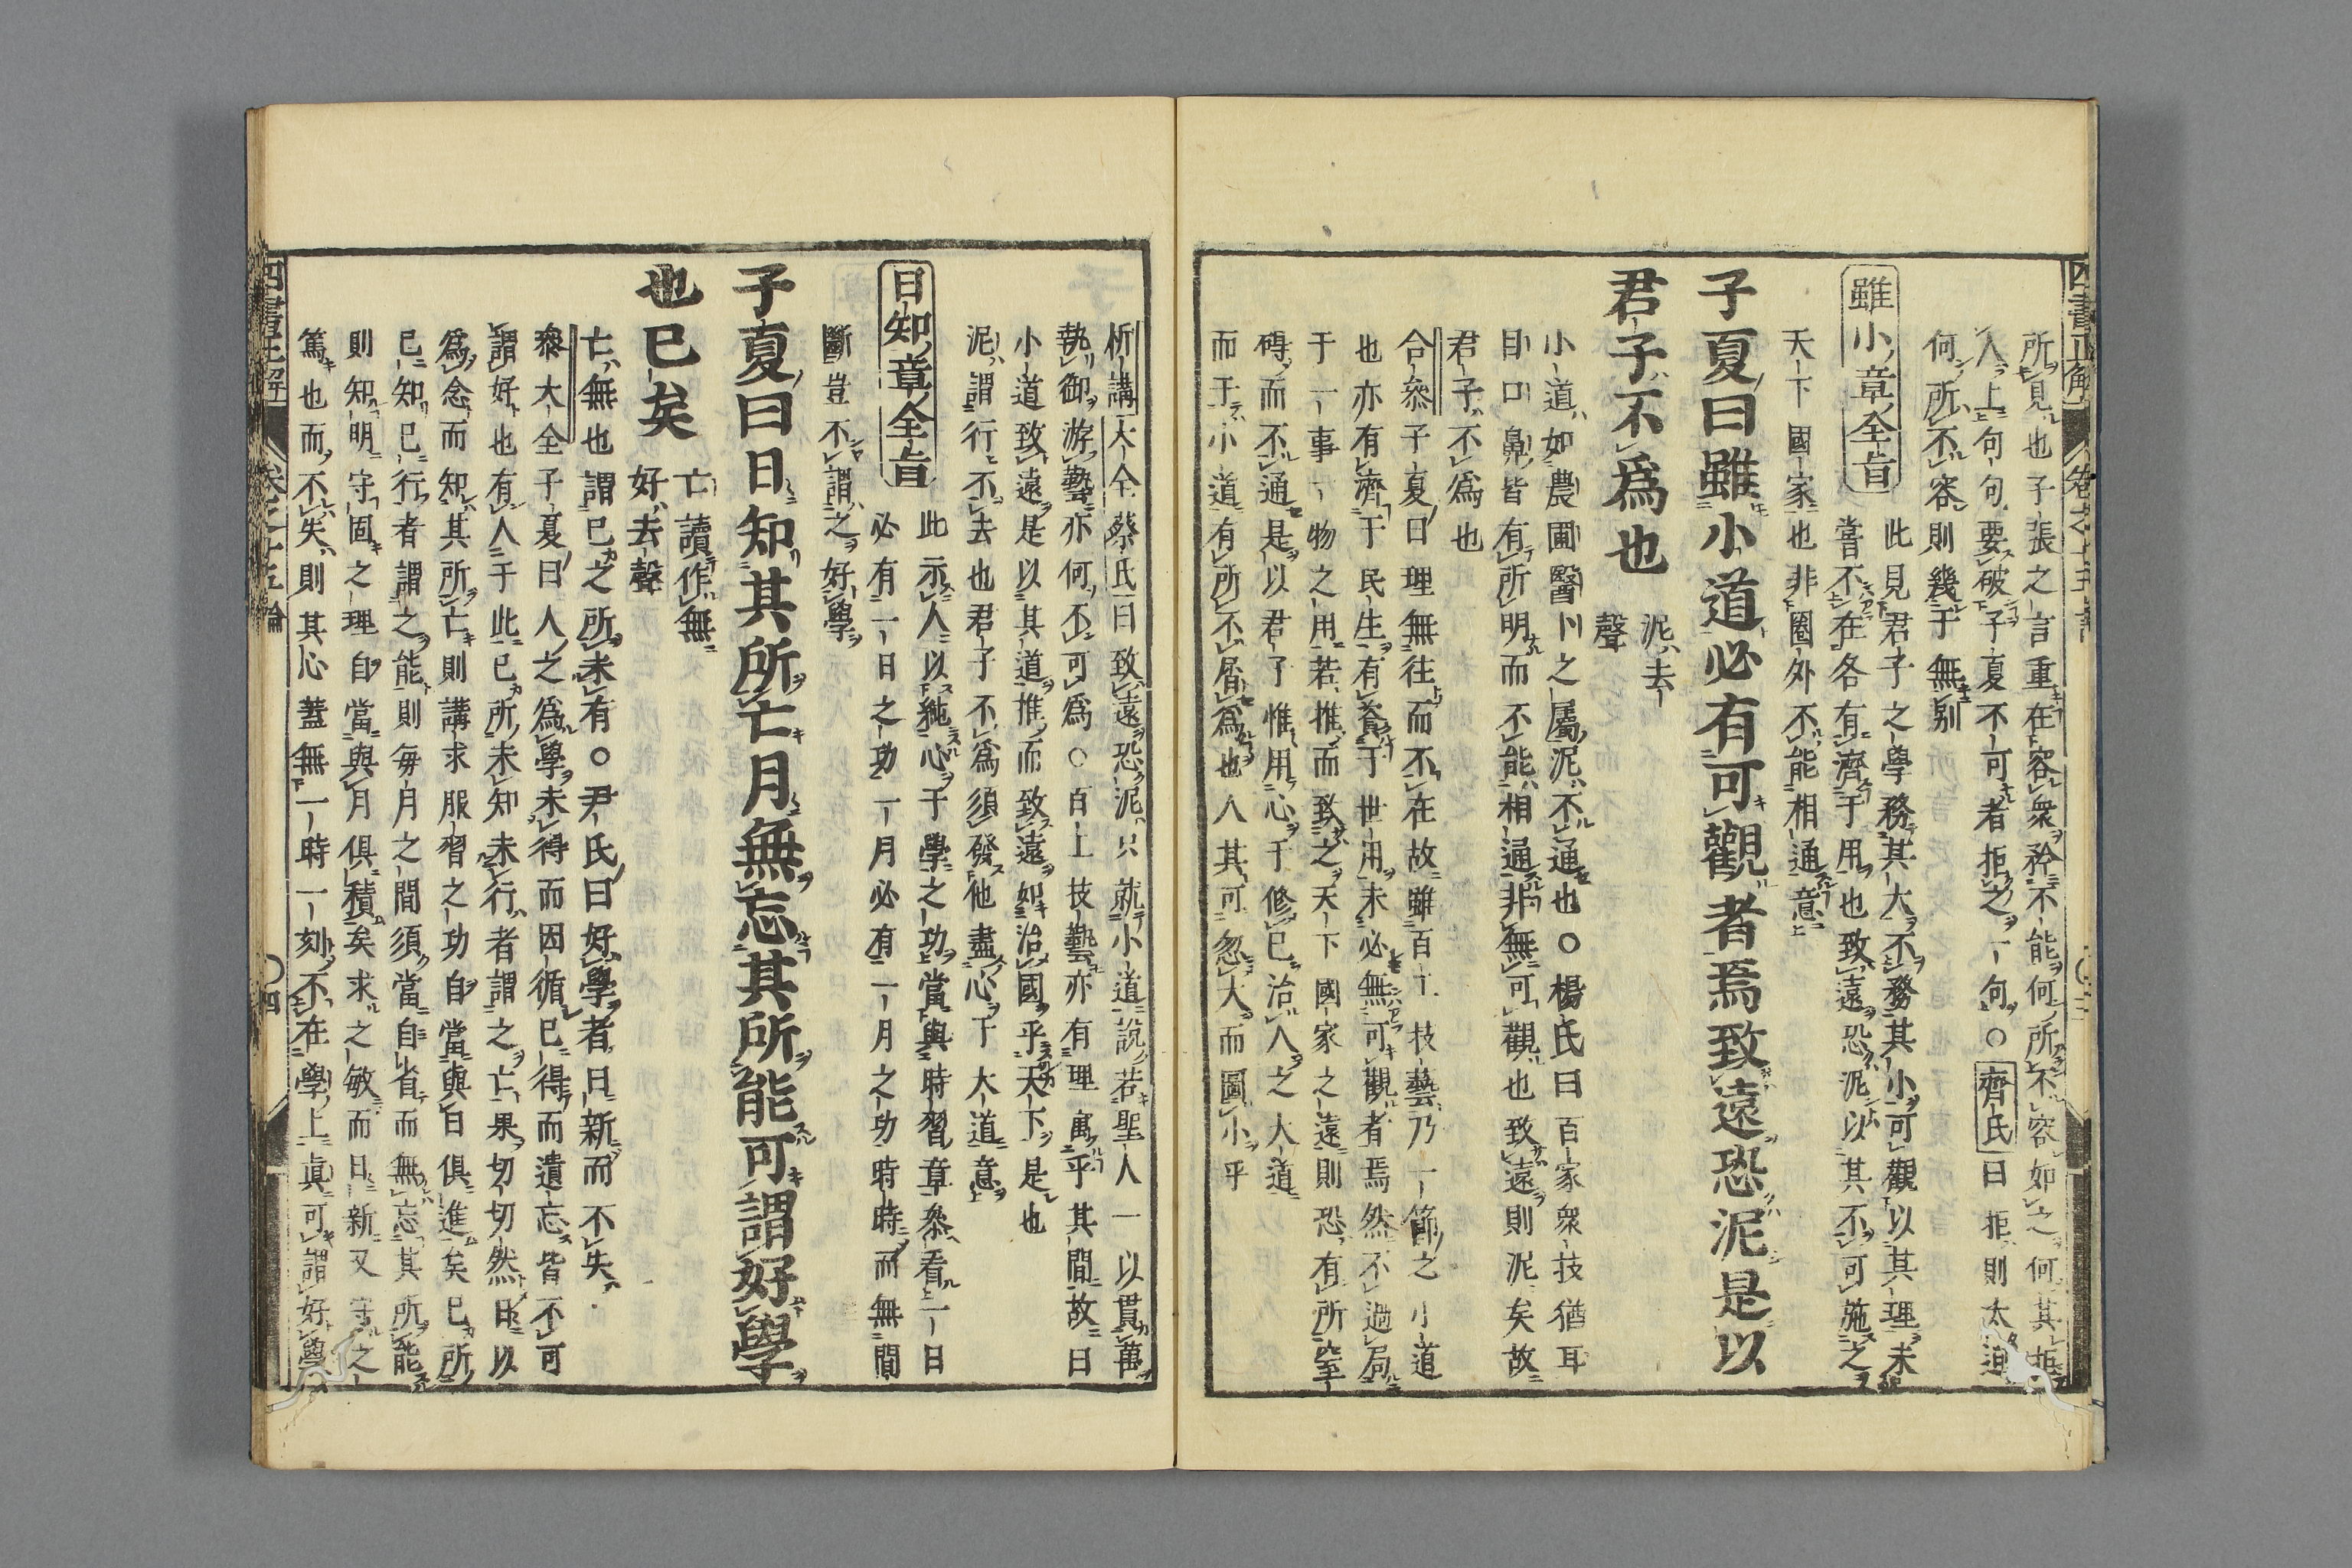 所見也子張之言重在容衆矜不能何所不容如之何其拒
人上句句要破子夏不可者拒之一句○齊氏曰拒則太迫
何所不容則幾于無別
雖小章全旨
此見君子之學務其大不務其小可觀以其理未
嘗不在各有濟于用也致遠恐泥以其不可施之
天下國家也非圈外不能相通意
子夏曰雖小道必有可觀者焉致遠恐泥是以
君子不爲也
泥去
聲
小道如農圃醫卜之屬泥不通也○楊氏曰百家衆技猶耳
目口鼻皆有所明而不能相通非無可觀也致遠則泥矣故
君子不爲也
合參子夏曰理無往而不在故雖百工技藝乃一節之小道
也亦有濟于民生有資于世用未必無可觀者焉然不過局
于一事一物之用若推而致之天下國家之遠則恐有所窒
礙而不通是以君子惟用心于修已治人之大道
而于小道有所不屑爲也人其可忽大而圖小乎
析講大全蔡氏曰致遠恐泥只就小道說若聖人一以貫萬
執御游藝亦何不可爲○百工技藝亦有理寓乎其間故曰
小道致遠是以其道推而致遠如治國乎天下是也
泥謂行不去也君子不爲須發他盡心于大道意
日知章全旨
此示人以純心于學之功當與時習章參看一日
必有一日之功一月必有一月之功時時而無間
斷豈不謂之好學
子夏曰日知其所亡月無忘其所能可謂好學
也已矣
亡讀作無
好去聲
亡無也謂已之所未有○尹氏曰好學者日新而不失
參大全子夏曰人之爲學未得而因循已得而遺忘皆不可
謂好也有人于此已所未知未行者謂之亡果切切然日以
爲念而知其所亡則講求服習之功自當與日俱進矣已所
已知已行者謂之能則每月之間須當自省而無忘其所能
則知明守固之理自當與月俱積矣求之敏而日新又守之
篤也而不失則其心蓋無一時一刻不在學上眞可謂好學
四書正解
卷之十五論
○四